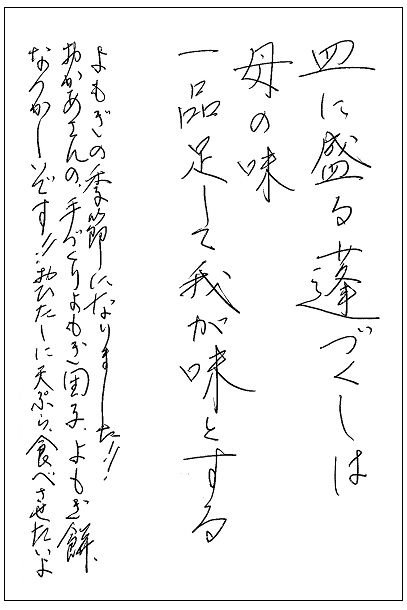 皿に盛る蓬づくしは
母の味
一品足して我が味とする
よもぎの季節になりました!!
おかあさんの、手づくりよもぎ団子、よもぎ餅、
なつかしいです!!おひたしに天ぷら、食べさせたいよ